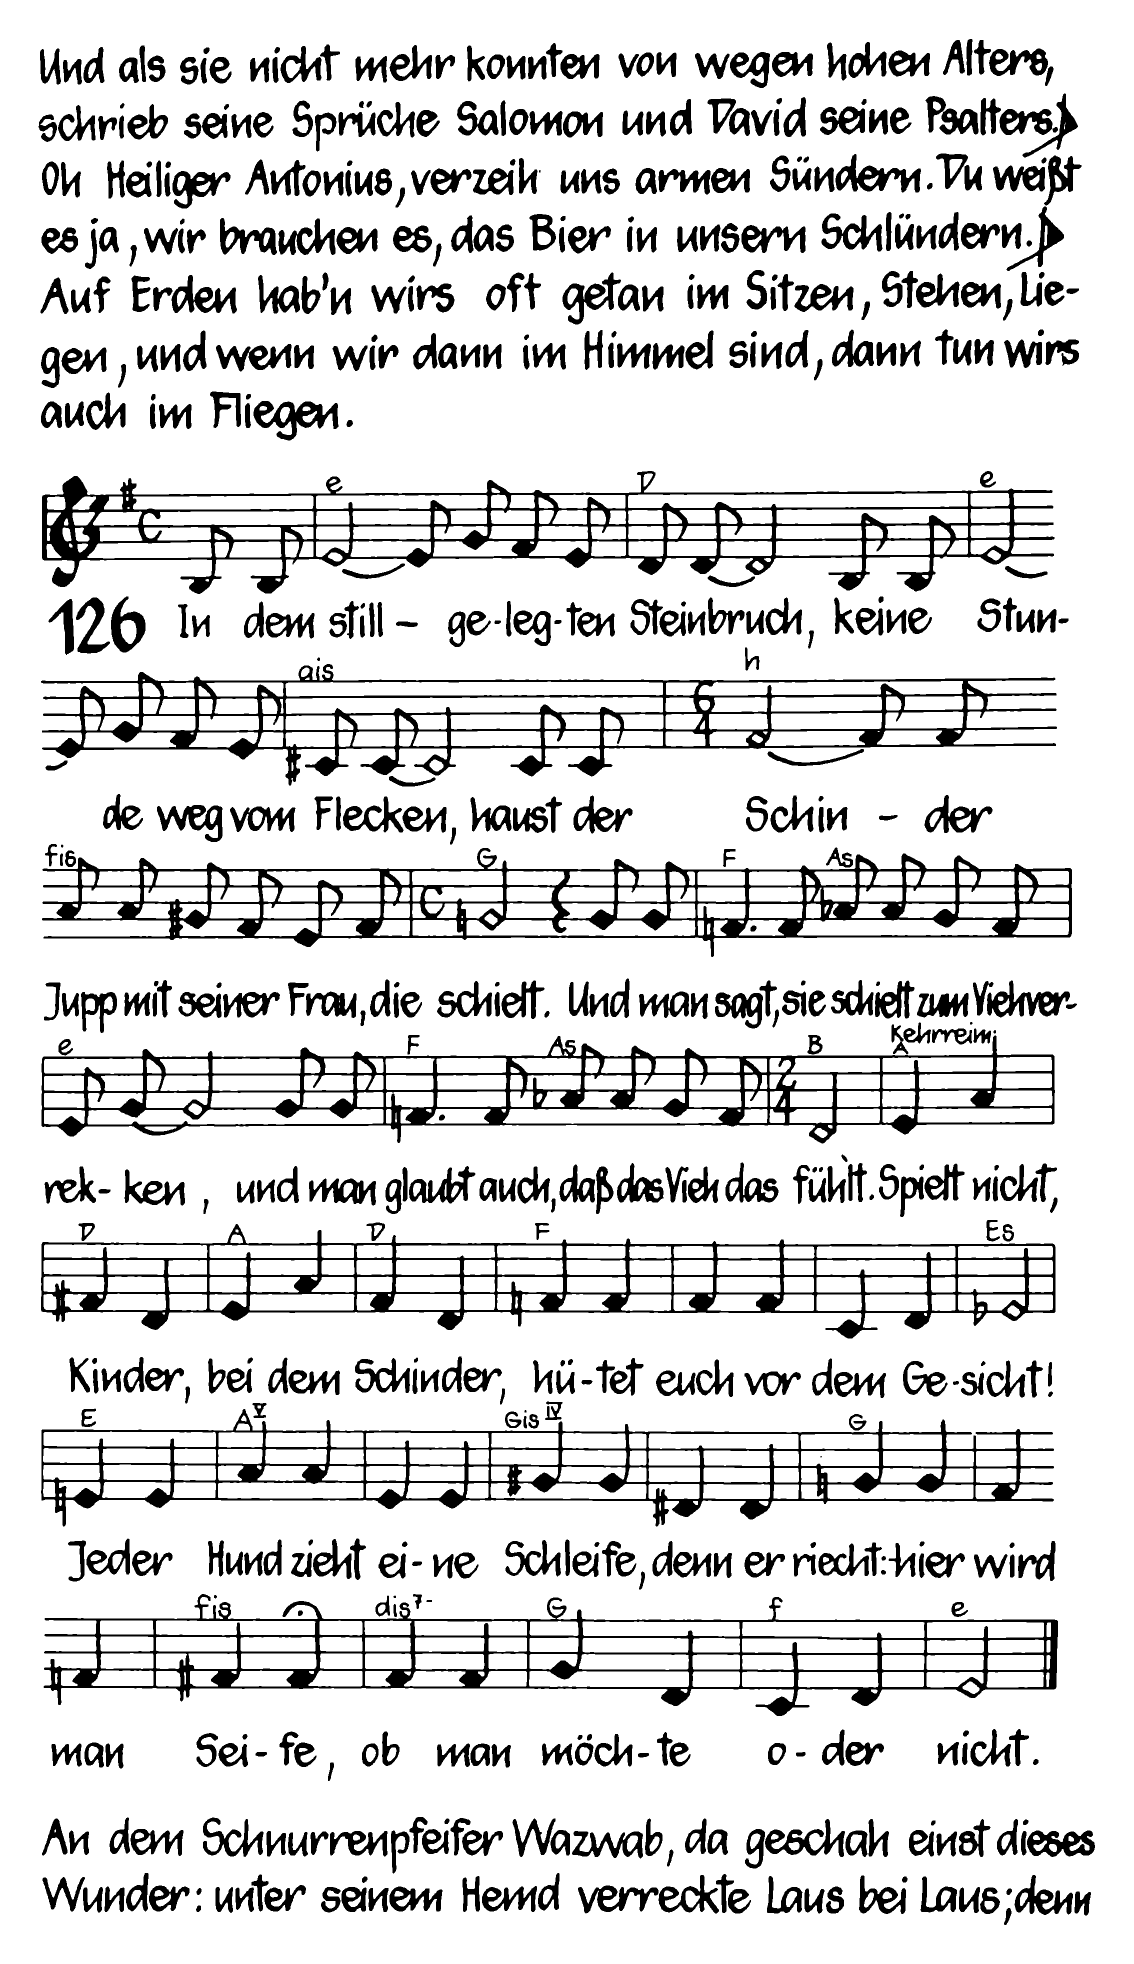 Und als sie nicht mehr konnten von wegen hohen Alters,
schrieb seine Sprüche Salomon und David seine Psalters.
Oh Heiliger Antonius, verzeih uns armen Sündern. Du weißt
es ja, wir brauchen es, das Bier in unsern Schlündern.
Auf Erden hab'n wirs oft getan im Sitzen, Stehen, Lie-
gen, und wenn wir dann im Himmel sind, dann tun wirs
auch im Fliegen.
e D e
C
126 In dem still - ge-leg-ten Steinbruch, keine Stun-
ais h
6
4
de weg vom Flecken, haust der Schin - der
fis G F As
C
Jupp mit seiner Frau, die schielt. Und man sagt, sie schielt zum Viehver-
Kehrreim:
e F As B A
2
4
rek- ken, und man glaubt auch, daß das Vieh das fühlt. Spielt nicht,
D A D F Es
Kinder, bei dem Schinder, hü-tet euch vor dem Ge-sicht!
E A V Gis IV G
Jeder Hund zieht ei-ne Schleife, denn er riecht: hier wird
fis dis7- G f e
man Sei-fe, ob man möch-te o-der nicht.
An dem Schnurrenpfeifer Wazwab, da geschah einst dieses
Wunder: unter seinem Hemd verreckte Laus bei Laus; denn